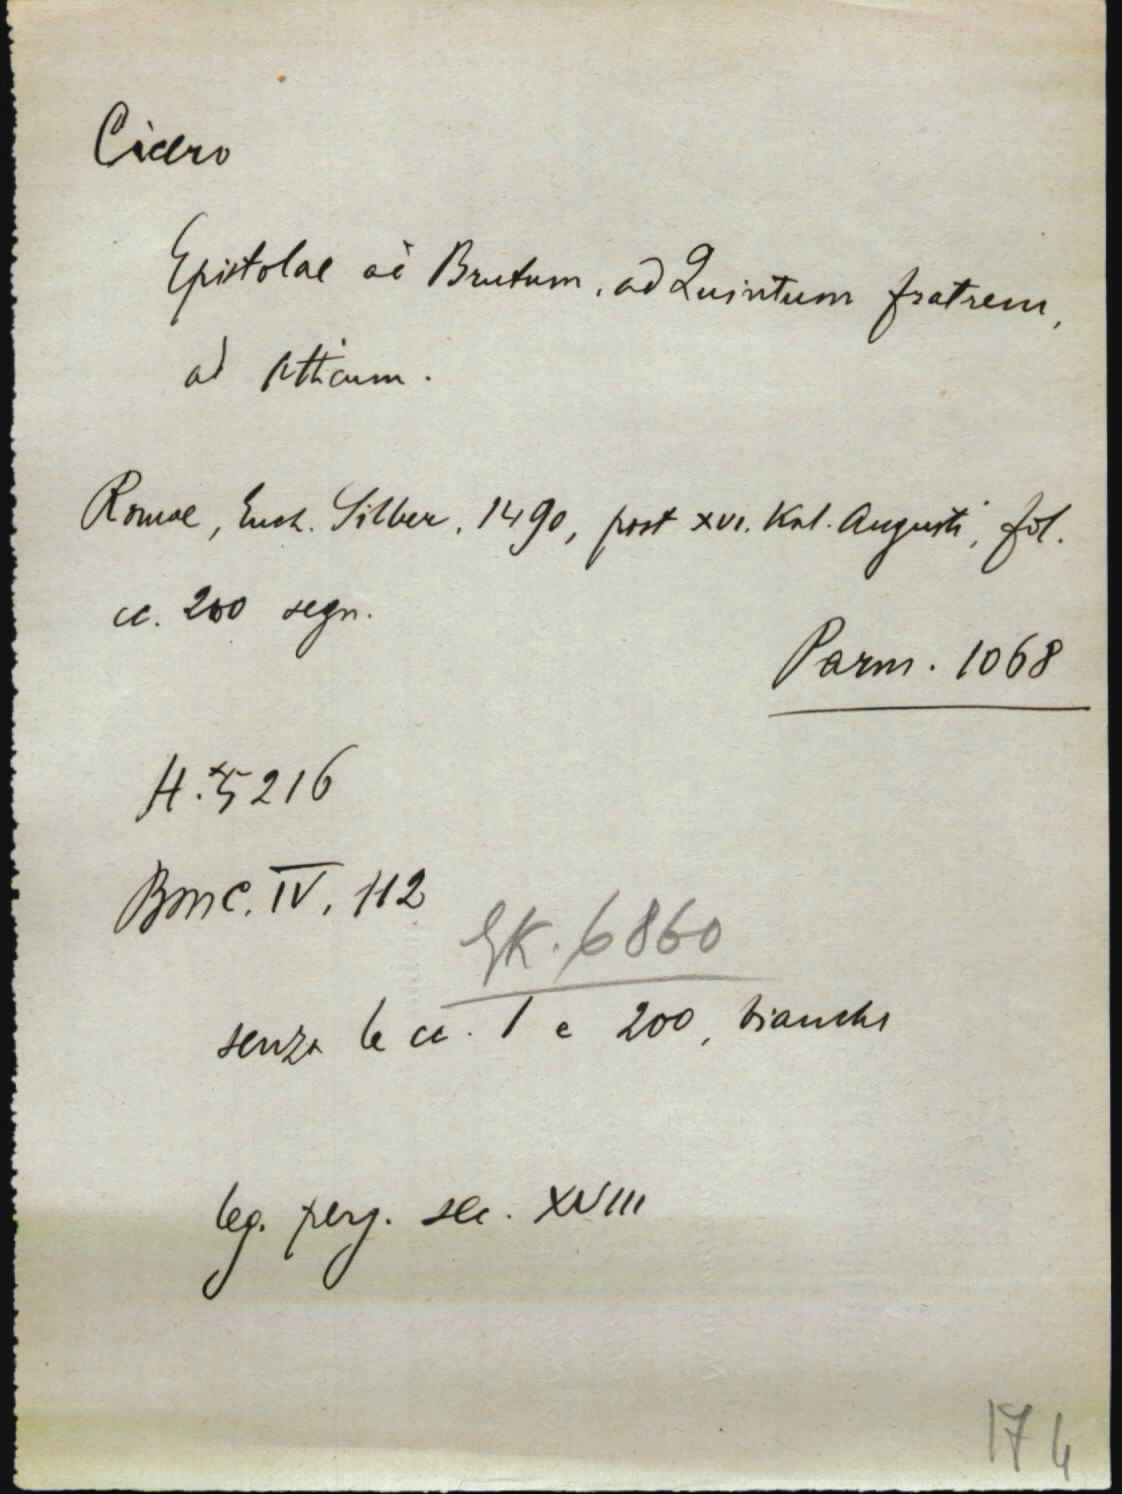 Cicero
Epistolae ad Brutum, ad Quintum fratrem,
ad Atticum.
Romae, Euch. Silber, 1490, post XVI. Kal. Augusti, fol.
cc. 200 segn.
Parm. 1068
H.*5216
BMC. IV, 112
GK. 6860
senza le cc. 1 e 200, bianche
leg. perg. sec. XVIII
174